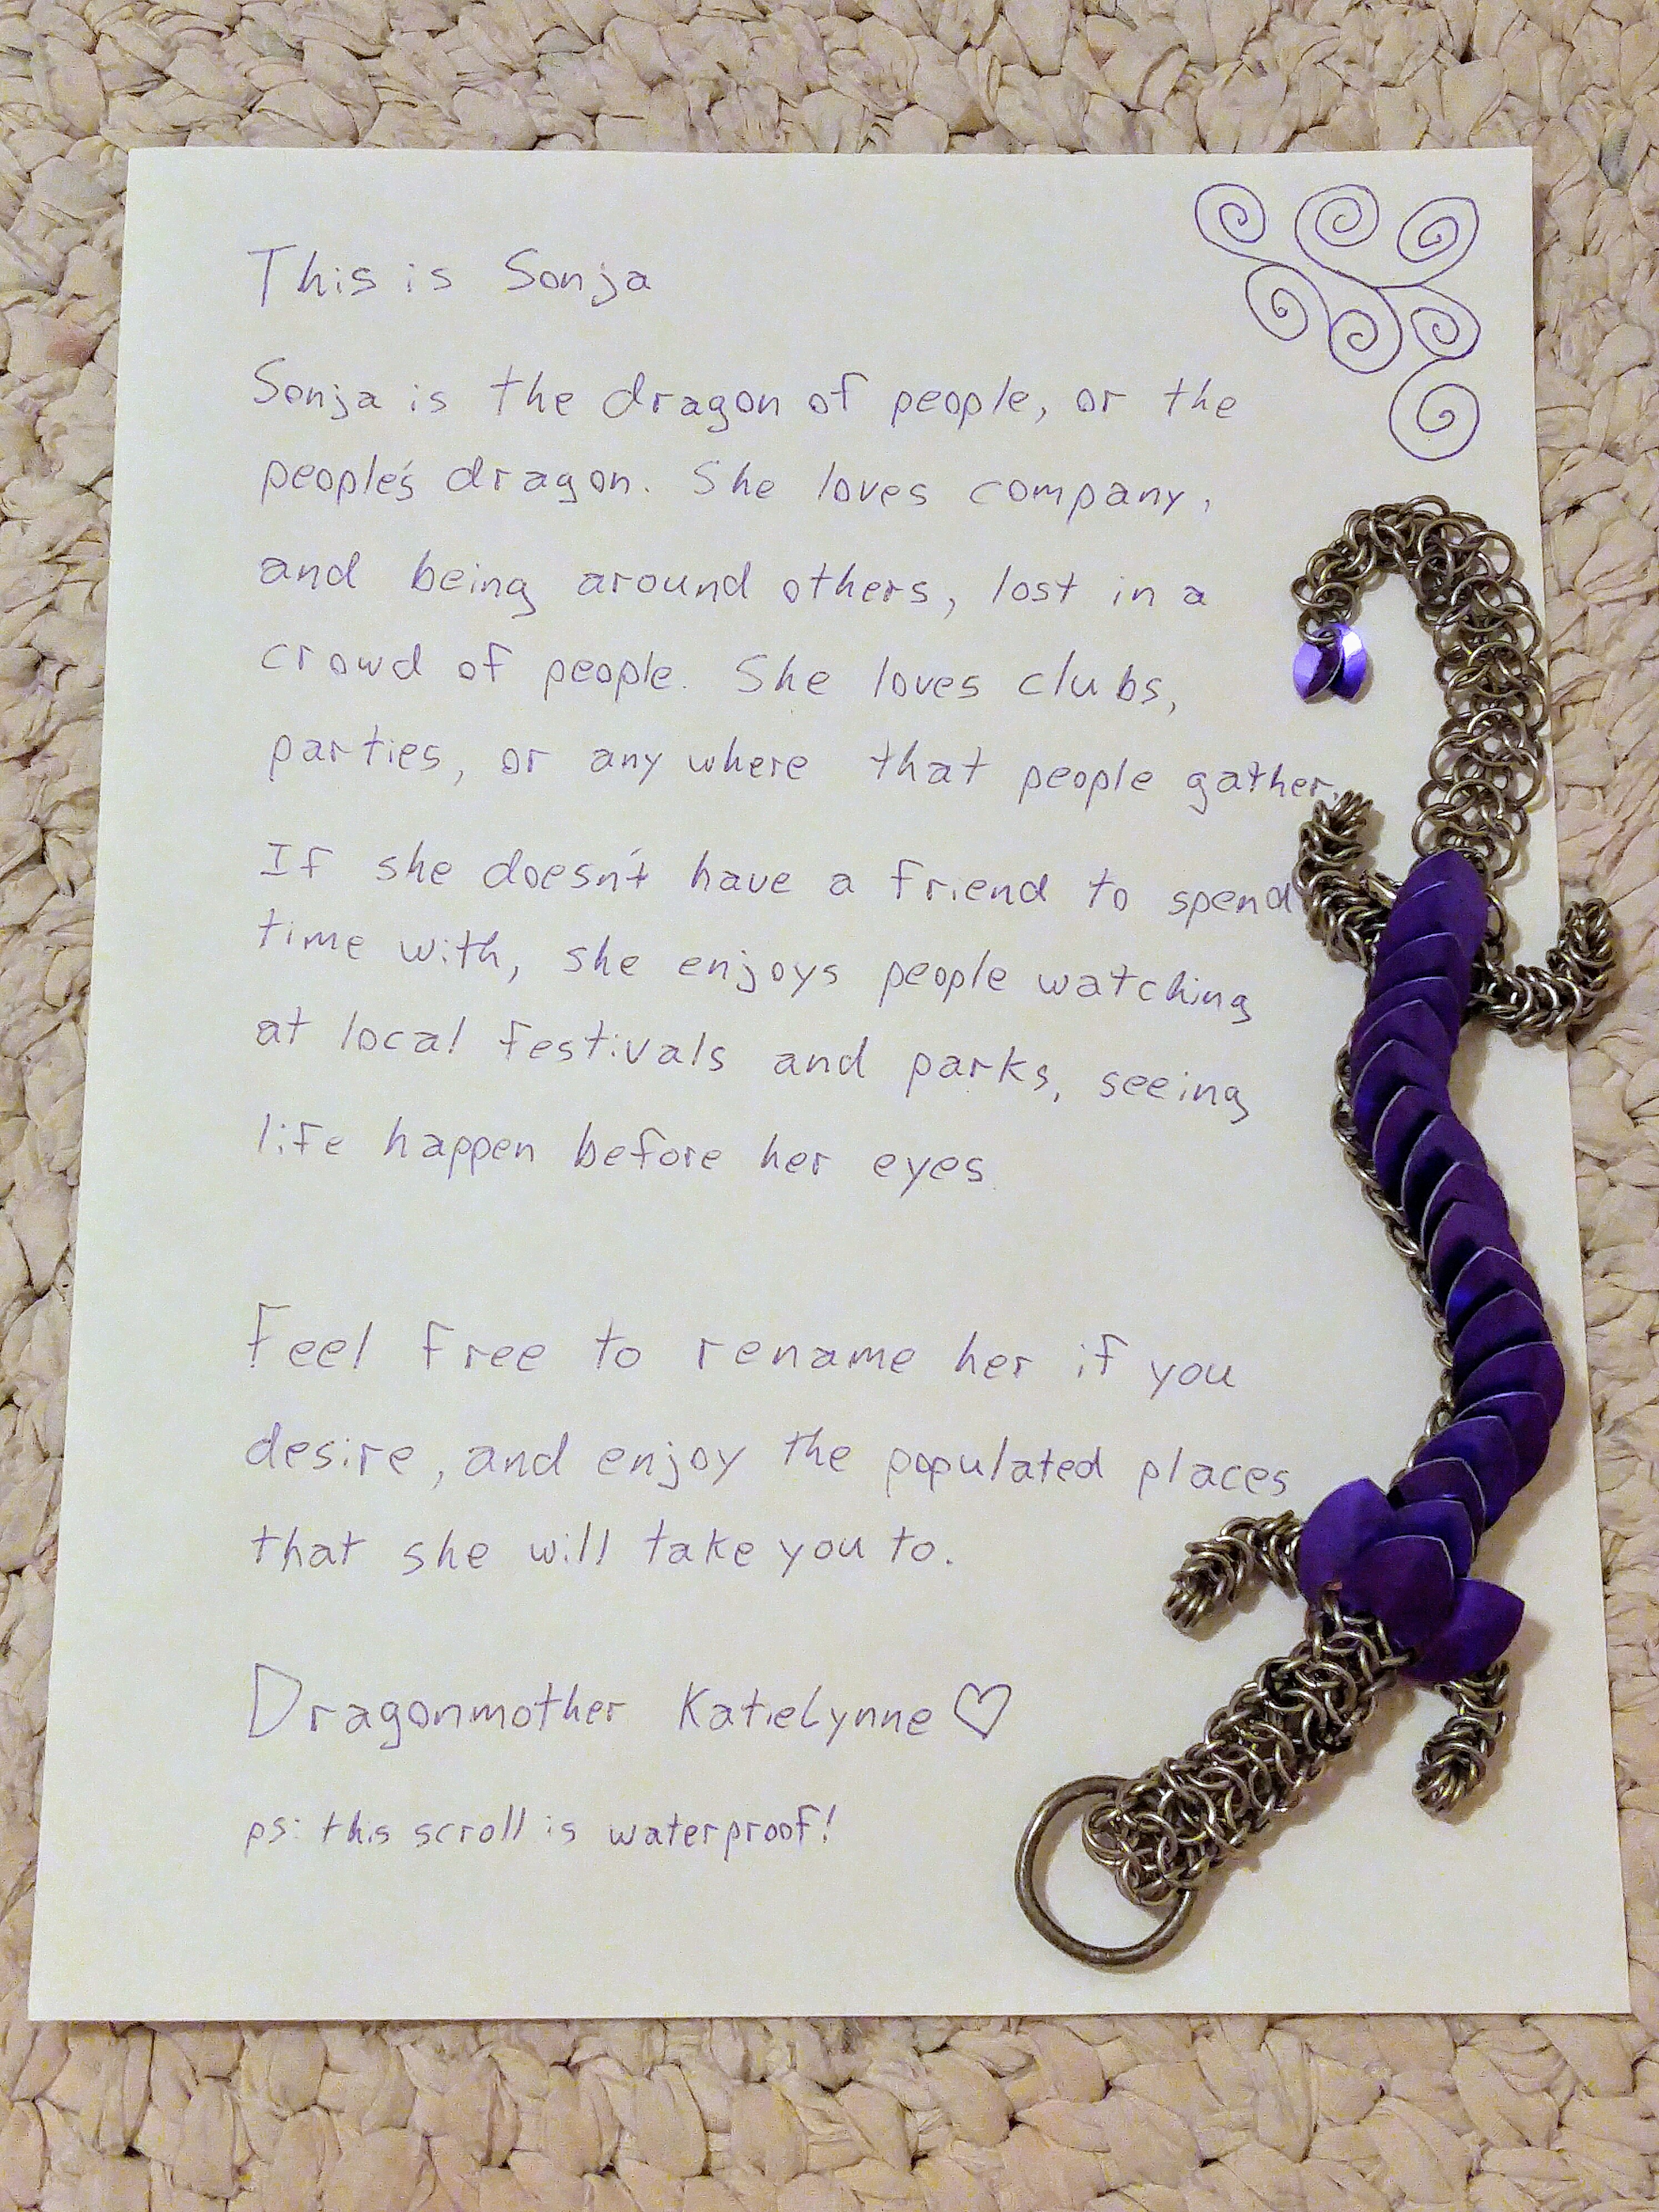 This is Sonja
Sonja is the dragon of people, or the
people's dragon. She loves company,
and being around others, lost in a
crowd of people. She loves clubs,
parties, or any where that people gather.
If she doesn't have a friend to spend
time with, she enjoys people watching
at local festivals and parks, seeing
life happen before her eyes.
Feel free to rename her if you
desire, and enjoy the populated places
that she will take you to.
Dragonmother KatieLynne ♡
ps: this scroll is waterproof!